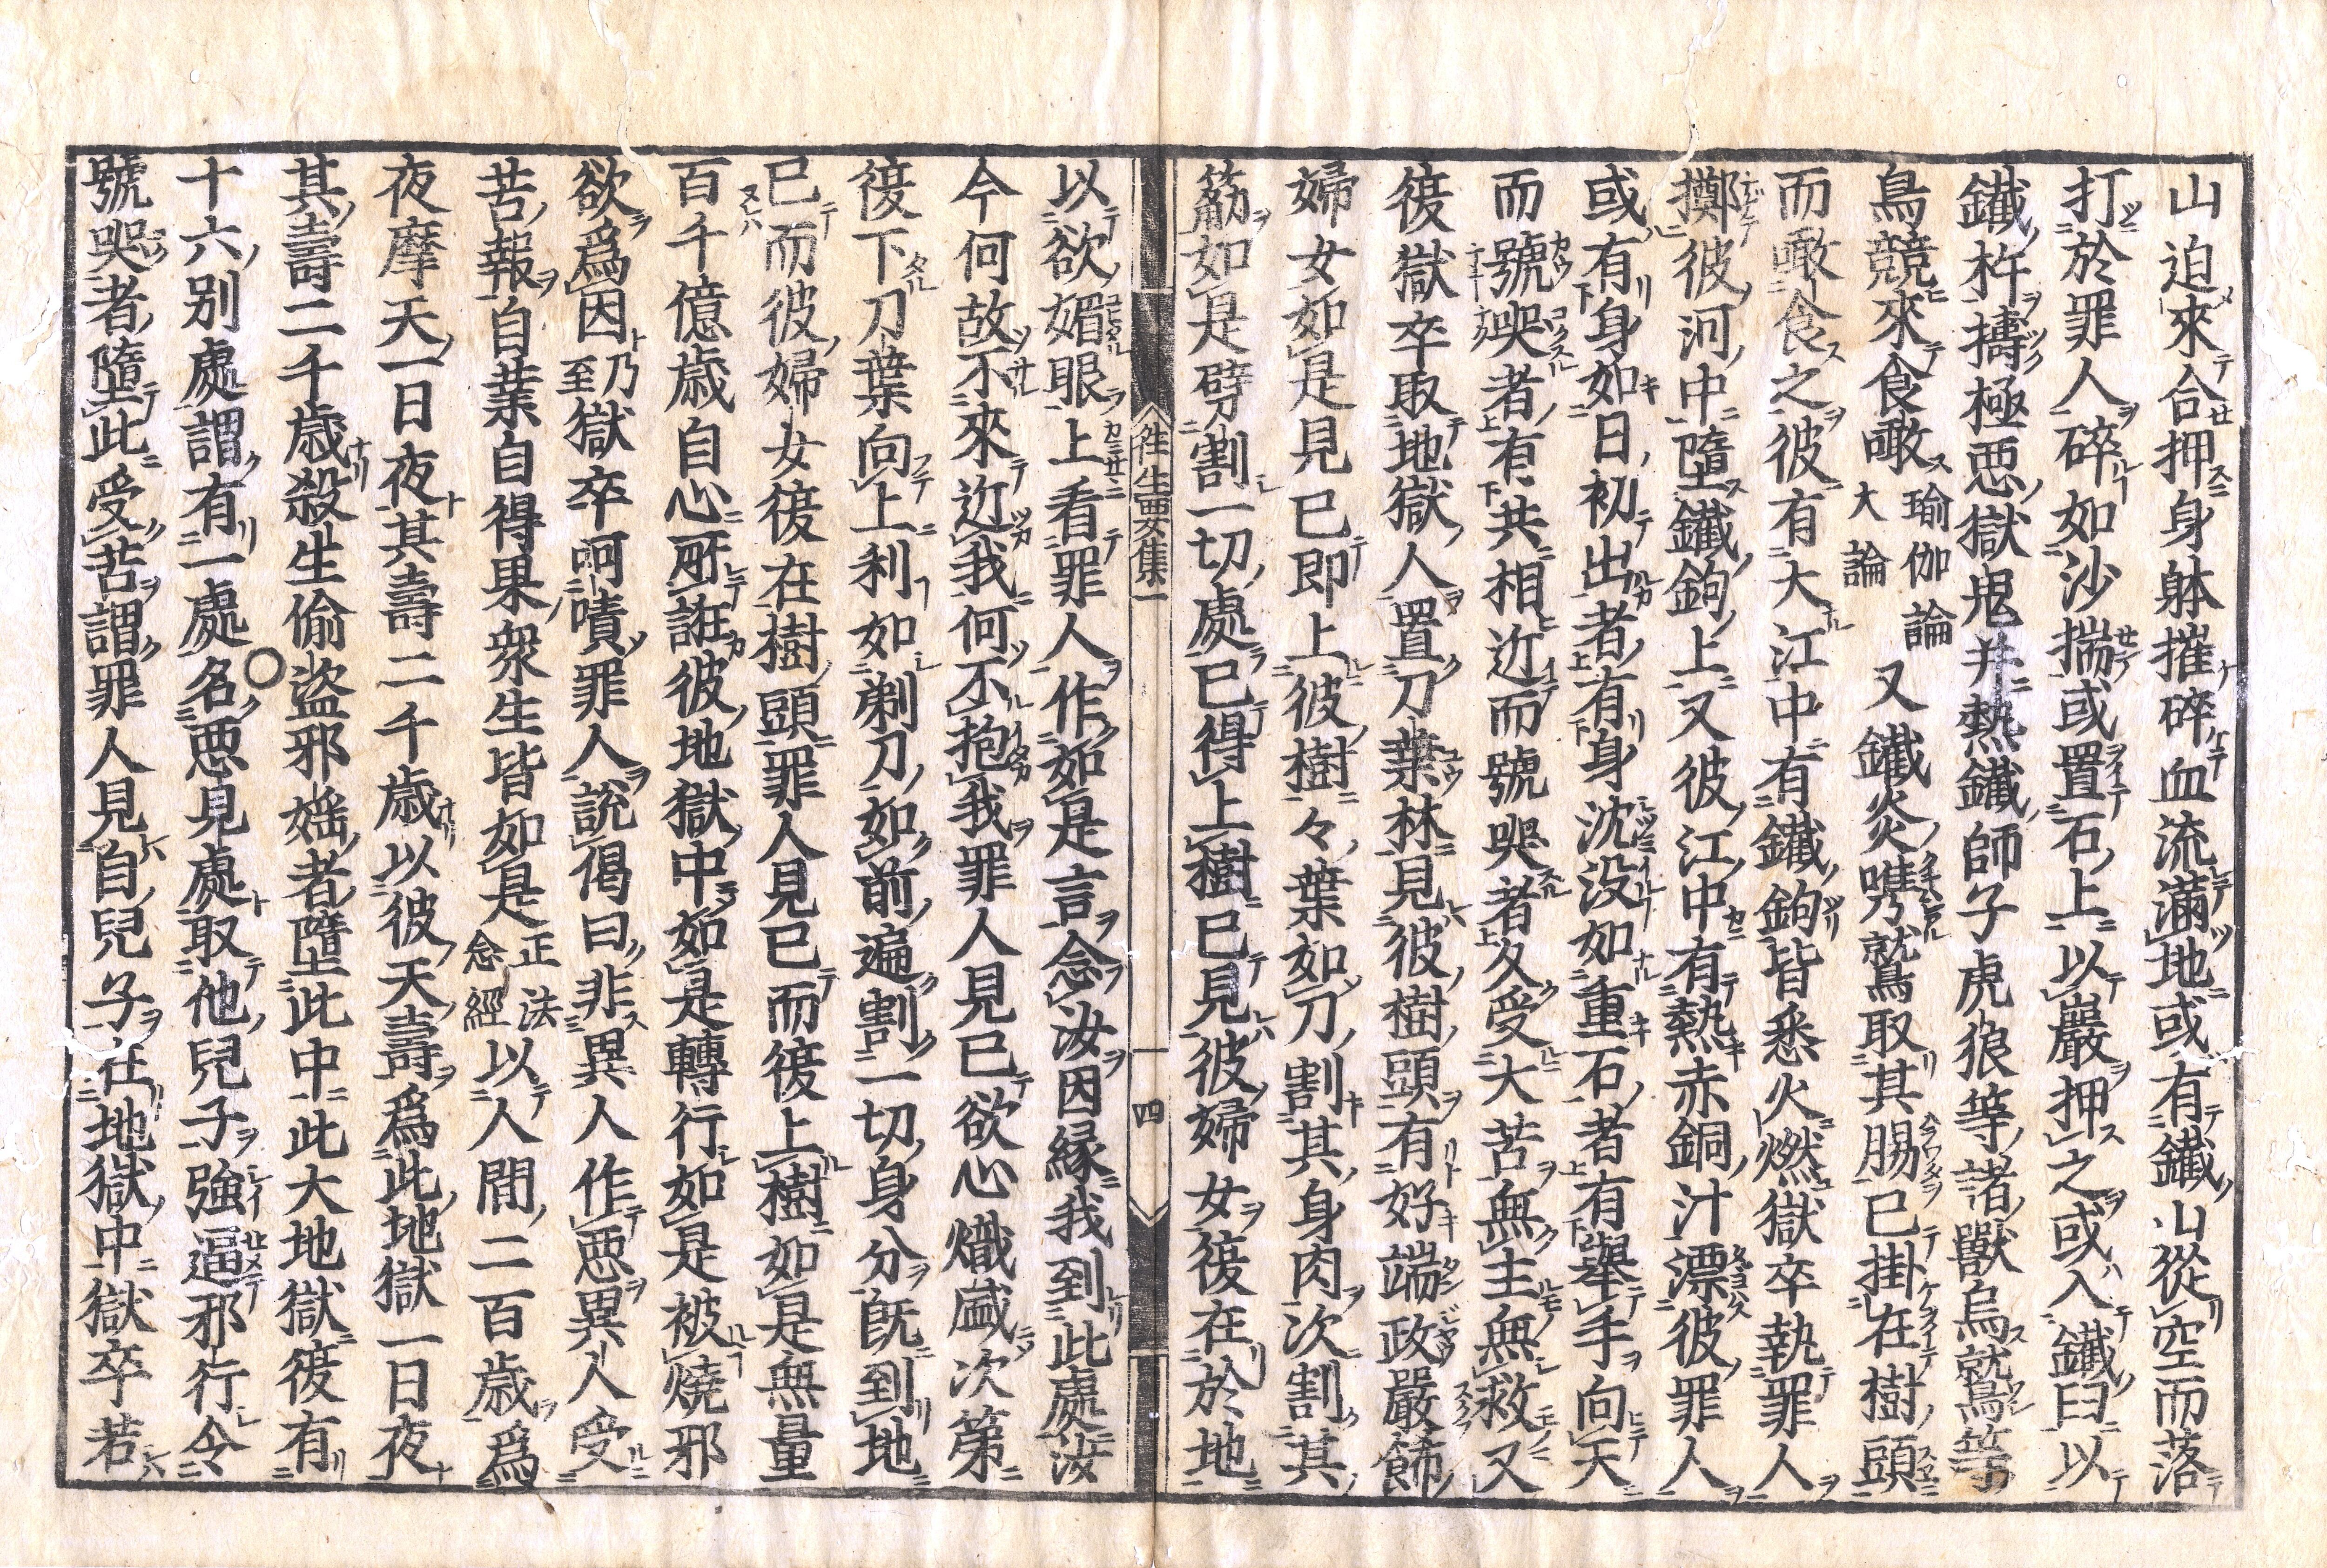 山迫來合押身躰摧碎血流滿地或有鐵山從空而落
打於罪人碎如沙揣或置石上以巖押之或入鐵臼以
鐵杵擣極惡獄鬼并熱鐵師子虎狼等諸獸烏就鳥等
鳥競來食噉瑜伽論大論又鐵炎㭰鷲取其腸已掛在樹頭
而噉食之彼有大江中有鐵鉤皆悉火燃獄卒執罪人
擲彼河中墮鐵鉤上又彼江中有熱赤銅汁漂彼罪人
或有身如日初出者有身沈没如重石者有舉手向天
而號哭者有共相近而號哭者久受大苦無主無救又
彼獄卒取地獄人置刀葉林見彼樹頭有好端政嚴餝
婦女如是見已即上彼樹々葉如刀割其身肉次割其
筋如是劈割一切處已得上樹已見彼婦女彼在於地
往生要集一
四
以欲媚眼上看罪人作如是言念汝因縁我到此處汝
今何故不來近我何不抱我罪人見已欲心熾盛次第
彼下刀葉向上利如剃刀如前遍割一切身分既到地
已而彼婦女彼在樹頭罪人見已而彼上樹如是無量
百千億歳自心所誑彼地獄中如是轉行如是被燒邪
欲爲因乃至獄卒呵嘖罪人説偈曰非異人作惡異人受
苦報自業自得果衆生皆如是正法念經以人間二百歳爲
夜摩天一日夜其壽二千歳以彼天壽爲此地獄一日夜
其壽二千歳殺生偷盜邪婬者墮此中此大地獄彼有
十六別處謂有一處名惡見處取他兒子強逼邪行令
號哭者墮此受苦謂罪人見自兒子在地獄中獄卒若